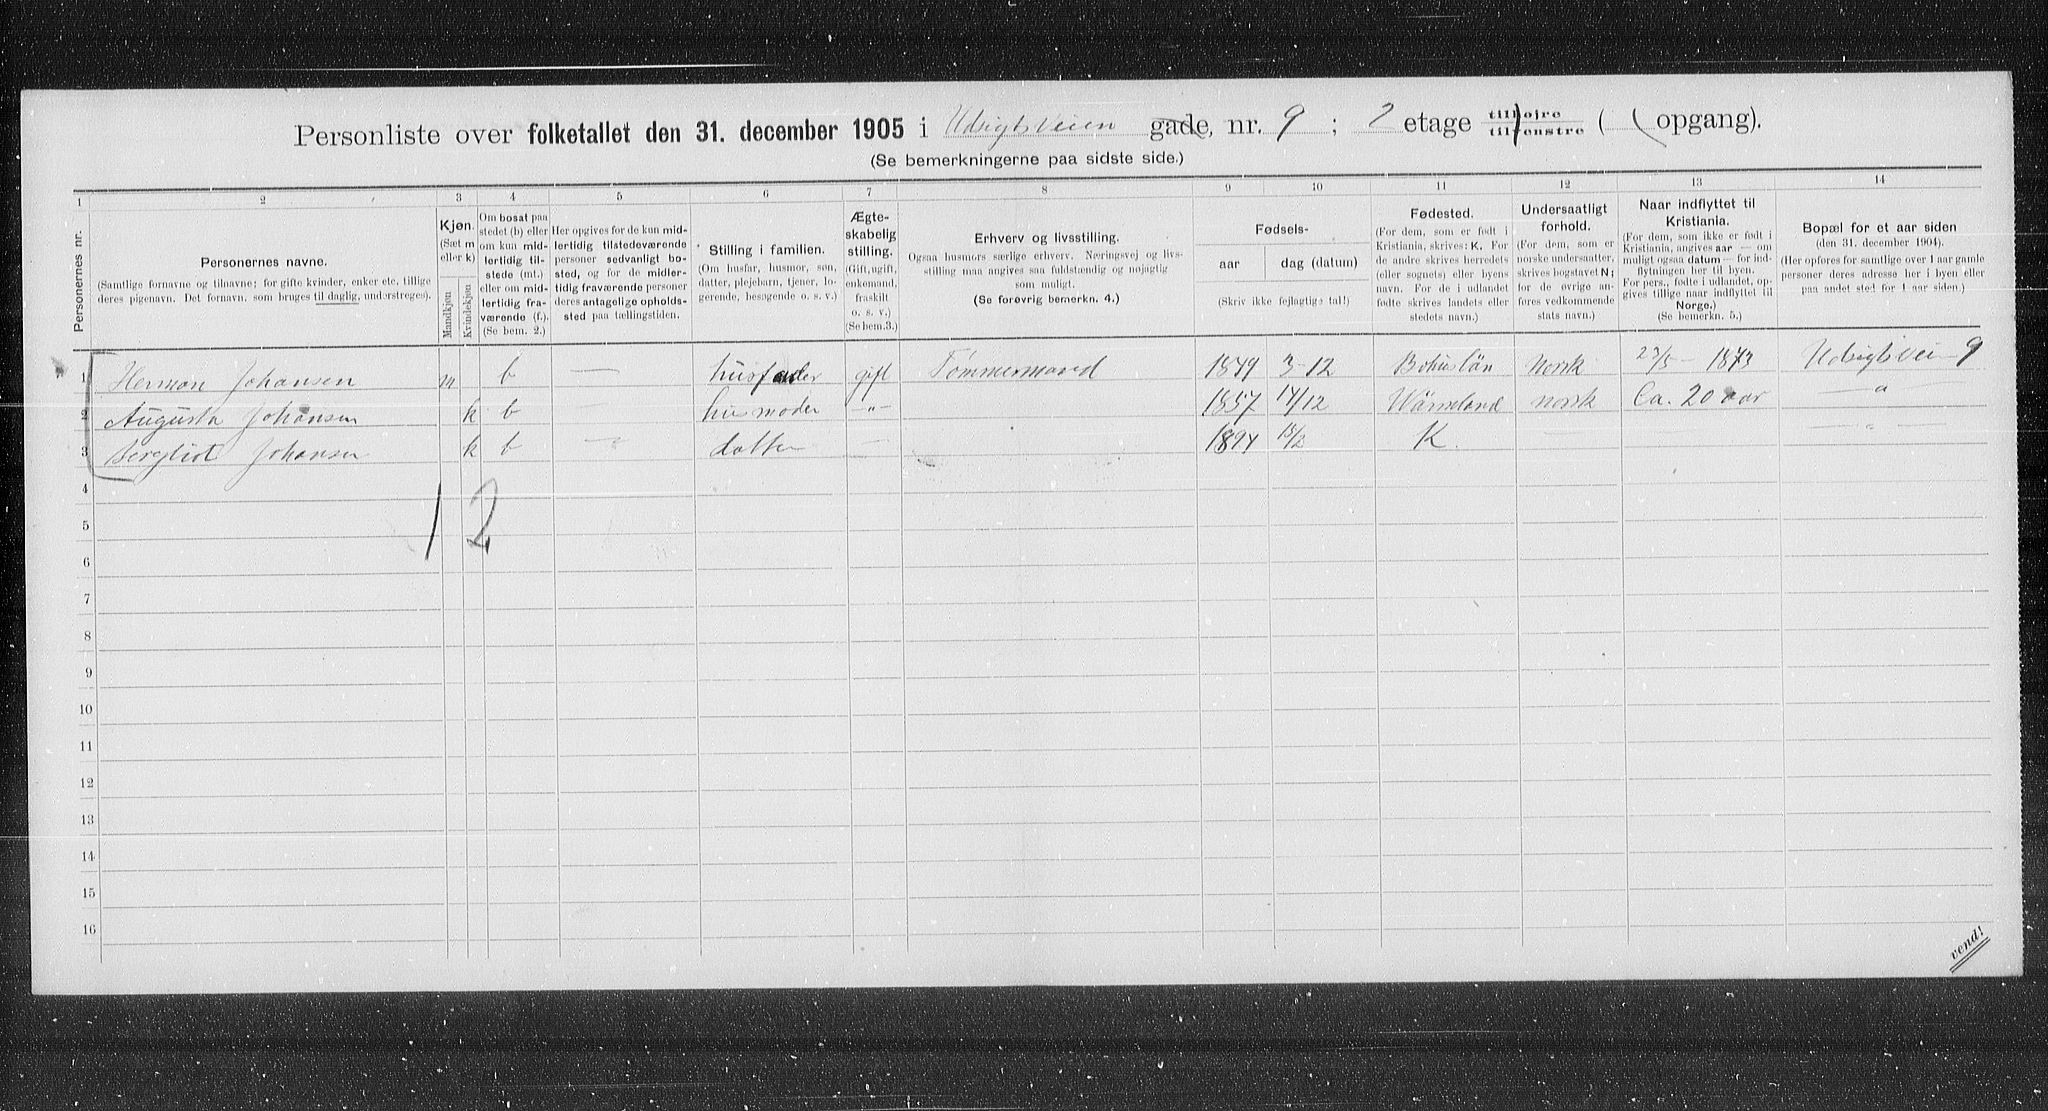 Personliste over folketallet den 31. december 1905 i Udsigtsveien gade, nr. 9 ; 2 etage tilhøjre tilvenstre ( opgang).
(Se bemerkningerne paa sidste side.)
1 2 3 4 5 6 7 8 9 10 11 12 13 14
Personernes nr.
Personernes navne.
(Samtlige fornavne og tilnavne; for gifte kvinder, enker etc. tillige
deres pigenavn. Det fornavn, som bruges til daglig, understreges).
Kjøn.
(Sæt m
eller k)
Mandkjøn
Kvindekjøn
Om bosat paa
stedet (b) eller
om kun mid-
lertidig til-
stede (mt.)
eller om mid-
lertidig fra-
værende (f.).
(Se bem. 2.)
Her opgives for de kun mid-
lertidig tilstedeværende
personer sedvanligt bo-
sted, og for de midler-
tidig fraværende personer
deres antagelige opholds-
sted paa tællingstiden.
Stilling i familien.
(Om husfar, husmor, søn,
datter, plejebarn, tjener, lo-
gerende, besøgende o. s. v.)
Ægte-
skabelig
stilling.
(Gift, ugift,
enkemand,
fraskilt
o. s. v.)
(Se bem.3.)
Erhverv og livsstilling.
Ogsaa husmors særlige erhverv. Næringsvej og livs-
stilling maa angives saa fuldstændig og nøjagtig
som muligt.
(Se forøvrig bemerkn. 4.)
Fødsels-
aar dag (datum)
(Skriv ikke fejlagtige tal!)
Fødested.
(For dem, som er født i
Kristiania, skrives: K. For
de andre skrives herredets
(eller sognets) eller byens
navn. For de i udlandet
fødte skrives landets eller
stedets navn.)
Undersaatligt
forhold.
(For dem, som er
norske undersaatter,
skrives bogstavet N;
for de øvrige an-
føres vedkommende
stats navn.)
Naar indflyttet til
Kristiania.
(For dem, som ikke er født i
Kristiania, angives aar — om
muligt ogsaa datum — for ind-
flytningen her til byen.
For pers., fødte i udlandet, op-
gives tillige naar indflyttet til
Norge.)
(Se bemerkn. 5.)
Bopæl for et aar siden
(den 31. december 1904).
(Her opføres for samtlige over 1 aar gamle
personer deres adresse her i byen eller
paa andet sted for 1 aar siden.)
1 Herman Johansen m b — husfader gift Tømmermand 1849 3-12 Bohuslän Norsk 23/5 - 1873 Udsigtsvei - 9
2 Augusta Johansen k b — husmoder -"- 1857 14/12 Wärmeland norsk Ca. 20 aar — " —
3 Bergliot Johansen k b — datter — 1894 15/2 K. — — " —
4
1 2
5
6
7
8
9
10
11
12
13
14
15
16
vend!